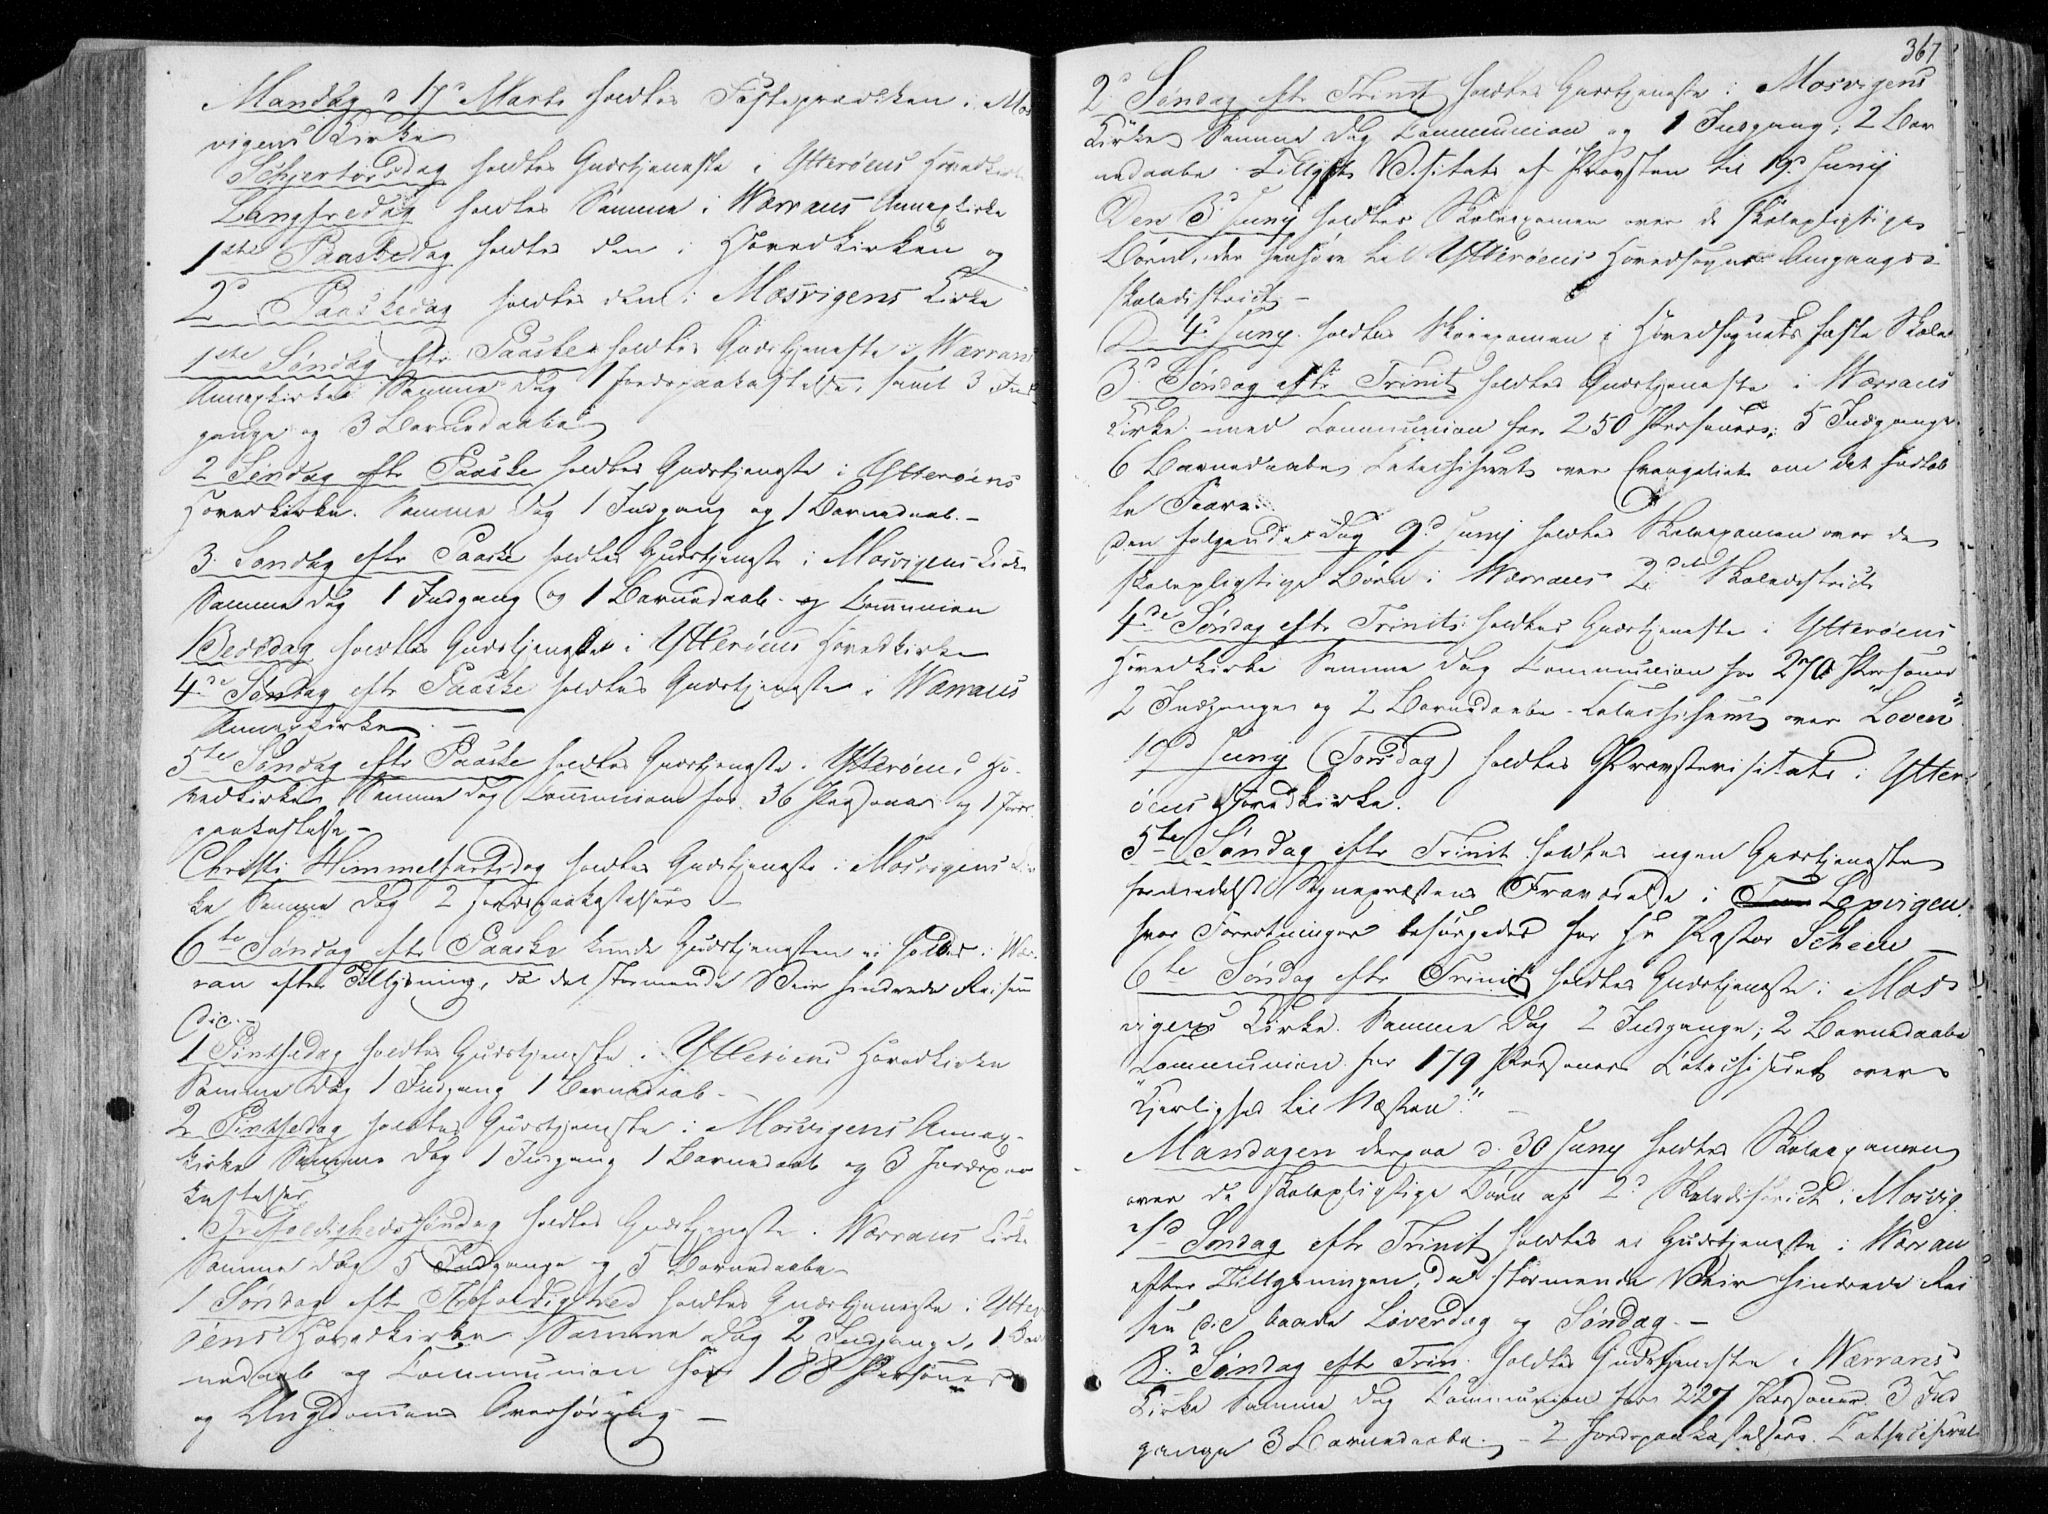 Mandag d 17d Marts holdtes Fasteprædiken i Mos
vigens Kirke
Schjertorsdag holdtes Gudstjeneste i Ytterøens Hovedkirke
Langfredag holdtes Samme i Wærrans Annexkirke
1ste Paaskedag holdtes den i Hovedkirken og
2d Paaskedag holdtes den i Mosvigens Kirke
1ste Søndag eftr Paaske holdtes Gudstjeneste i Wærrans
Annexkirke Samme Dag 1 Jordspaakastelse, samt 3 Ind
gange og 3 Barnedaabe
2 Søndag eftr Paaske holdtes Gudstjeneste i Ytterøens
Hovedkirke. Samme Dag 1 Indgang og 1 Barnedaab. –
3. Søndag eftr Paaske holdtes Gudstjeneste i Mosvigens Kirke
Samme Dag 1 Indgang og 1 Barnedaab og Communion
Bededag holdtes Gudstjeneste i Ytterøens Hovedkirke
4de Søndag eftr Paaske holdtes Gudstjeneste i Wærrans
Annexkirke. –
5te Søndag eftr Paaske holdtes Gudstjeneste i Ytterøens Ho-
vedkirke Samme Dag Communion for 36 Personer og 1 Jords
paakastelse –
Christi Himmelfartsdag holdtes Gudstjeneste i Mosvigens Kir
ke Samme Dag 2 Jordspaakastelser –
6te Søndag eftr Paaske kunde Gudstjenesten ei holdes i Wær
ran efter Tillysning, da det stormende Veir hindrede Reisen
did. –
1 Pintsedag holdtes Gudstjeneste i Ytterøens Hovedkirke
Samme Dag 1 Indgang 1 Barnedaab –
2 Pintsedag holdtes Gudstjeneste i Mosvigens Annex-
kirke Samme Dag 1 Indgang 1 Barnedaab og 3 Jordspaa
kastelser
Trefoldighedssøndag holdtes Gudstjeneste i Wærrans Kirke
Samme Dag 5 Indgange og 5 Barnedaabe –
1 Søndag eftr Trefoldighed holdtes Gudstjeneste i Ytter
øens Hovedkirke Samme Dag 2 Indgange, 1 Bar
nedaab og Communion for 188 Personer
og Ungdommens Overhøring –
367
2d Søndag eftr Trinit holdtes Gudstjeneste i Mosvigens
Kirke Samme Dag Communion og 1 Indgang; 2 Bar
nedaabe. Tillyst Visitats af Provsten til 19d Junij
Den 3d Junij holdtes Skoleexamen over de skolepligtige
Børn, der henhøre til Ytterøens Hovedsogns Omgangs-
skoledistrict –
D. 4d Junij holdtes Skoleexamen i Hovedsognets faste Skole
3d Søndag eftr Trinit holdtes Gudstjeneste i Wærrans
Kirke med Communion for 250 Personer; 5 Indgange
6 Barnedaabe Catechiseret over Evangeliet om det fortab
te Faar.
Den følgende Dag 9d Junij holdtes Skoleexamen over de
skolepligtige Børn i Wærrans 2det Skoledistrict
4de Søndag eftr Trinits holdtes Gudstjeneste i Ytterøens
Hovedkirke Samme Dag Communion for 270 Personer
2 Indgange og 2 Barnedaabe – Catechiseret over "Loven"
19d Junij (Torsdag) holdtes Provstevisitats i Ytter-
øens Hovedkirke.
5te Søndag eftr Trinit holdtes ingen Gudstjeneste
formedelst Sognepræstens Fraværelse i Lexvigen,
hvor Forretninger besørgedes for Hr Pastor Scheen –
6te Søndag eftr Trinit holdtes Gudstjeneste i Mos
vigens Kirke. Samme Dag 2 Indgange; 2 Barnedaabe
Communion for 179 Personer Catechiseret over
"Kjerlighed til Næsten." –
Mandagen derpaa d. 30 Junij holdtes Skoleexamen
over de skolepligtige Børn af 2d Skoledistrict i Mosvig.
7d Søndag eftr Trinit holdtes ei Gudstjeneste i Wærran
efter Tillysningen, da stormende Veir hindrede Rei
sen did baade Løverdag og Søndag. –
8d Søndag eftr Trin. holdtes Gudstjeneste i Wærrans
Kirke Samme Dag Communion for 227 Personer 3 Ind
gange 3 Barnedaabe. – 2 Jordspaakastelser. Catechiseret